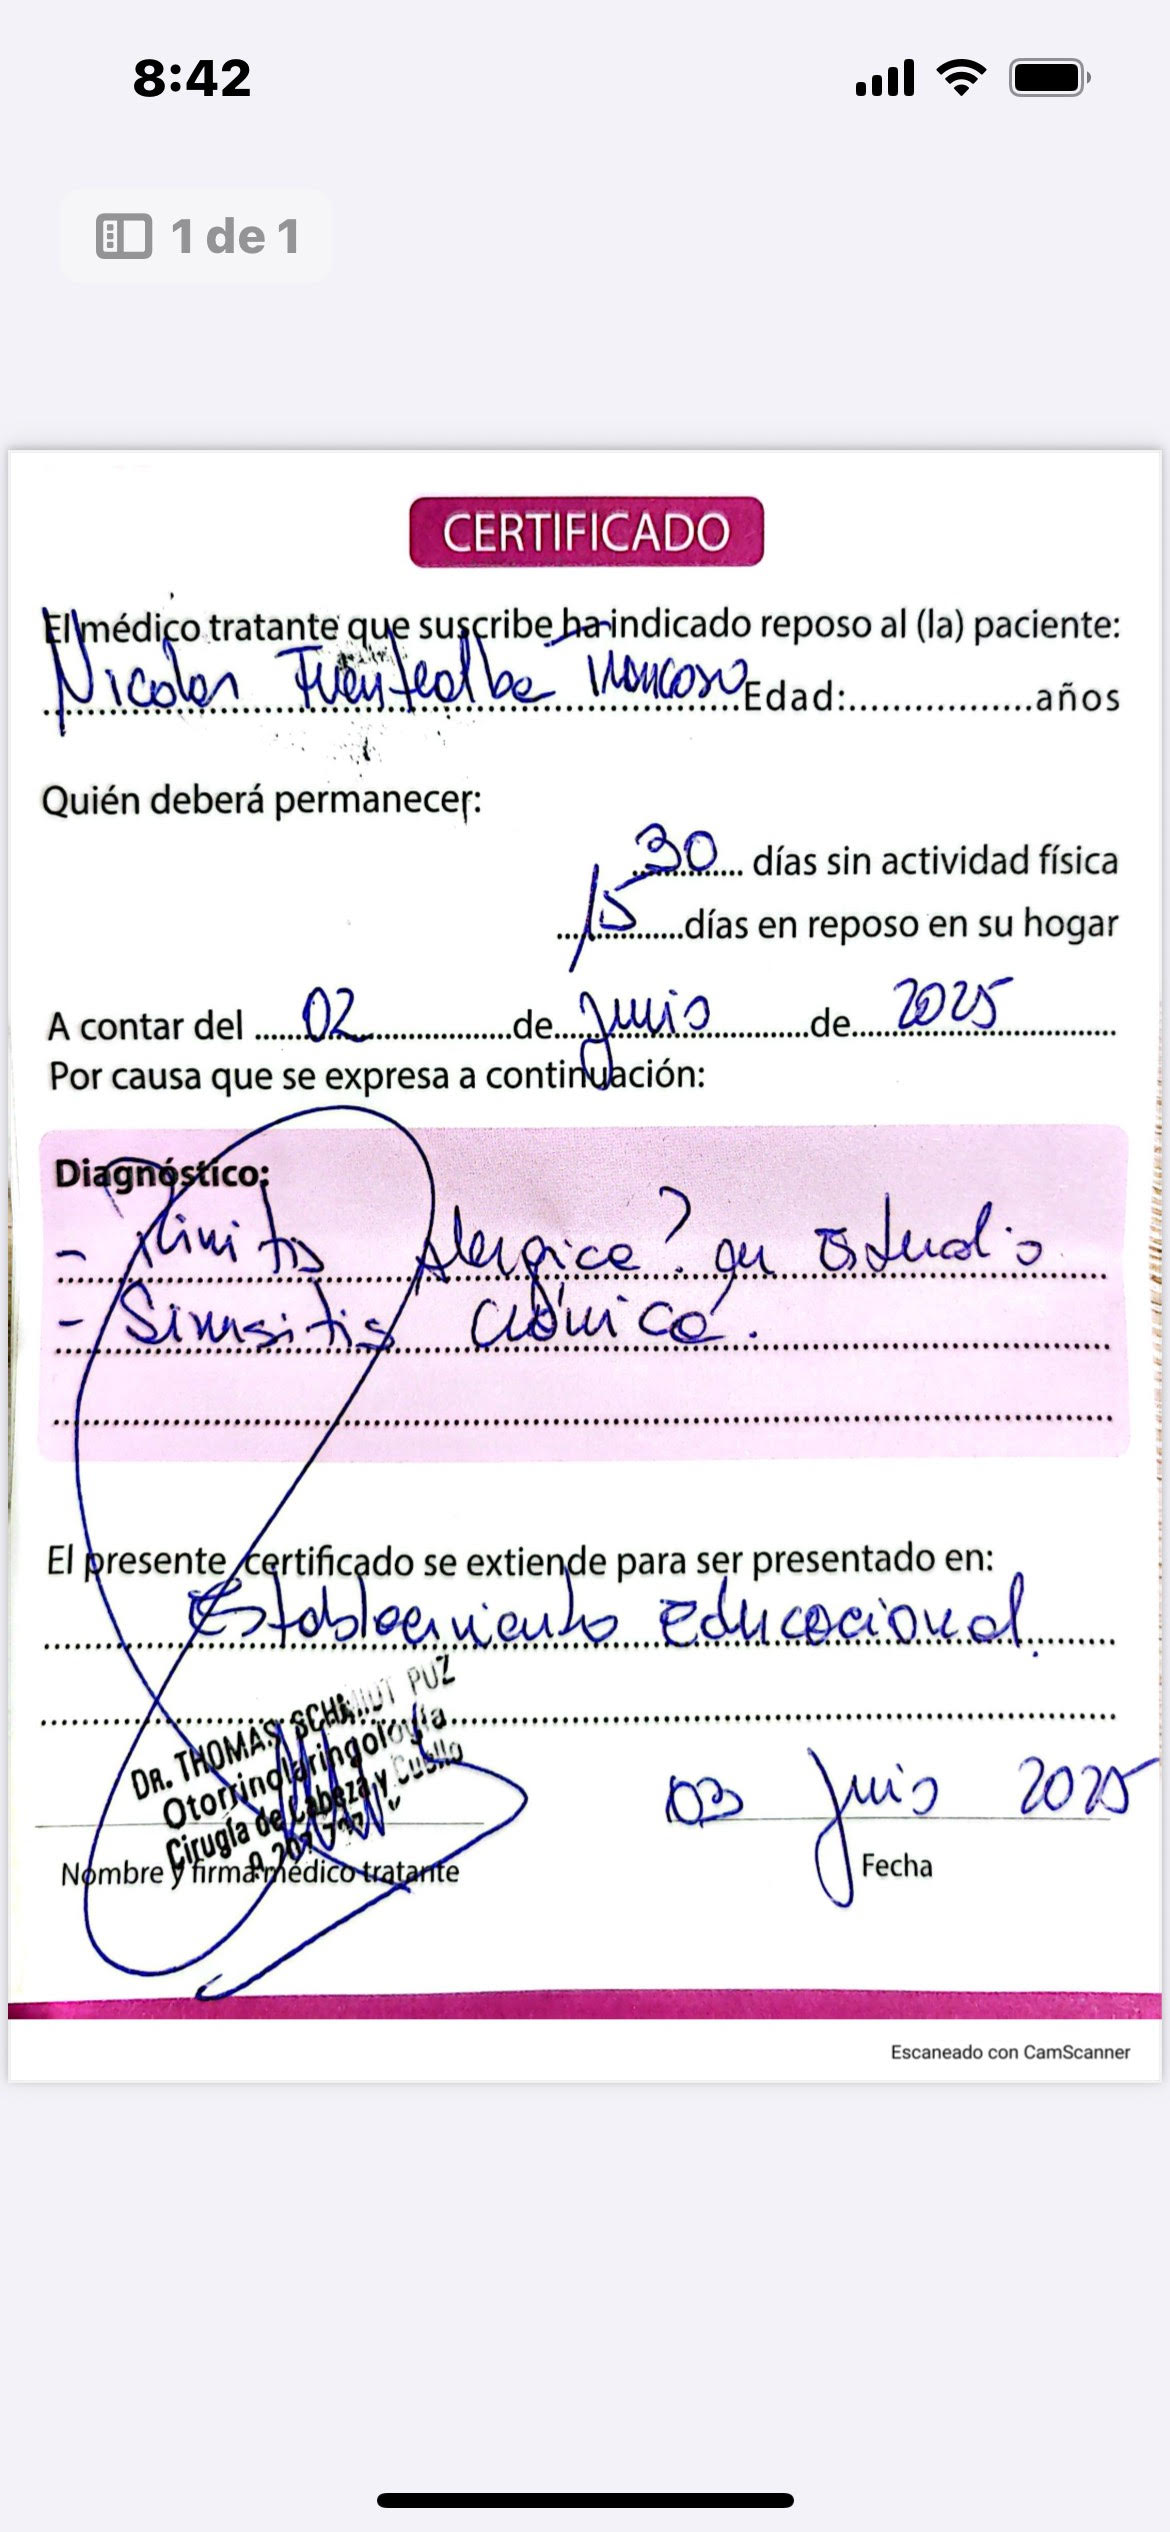 8:42
1 de 1
CERTIFICADO
El médico tratante que suscribe ha indicado reposo al (la) paciente:
Nicolas Fuentealba Troncoso Edad:................años
Quién deberá permanecer:
30 días sin actividad física
15 días en reposo en su hogar
A contar del 02 de Junio de 2025
Por causa que se expresa a continuación:
Diagnóstico:
- Rinitis Alergica? en estudio
- Sinusitis crónica.
El presente certificado se extiende para ser presentado en:
Establecimiento Educacional.
DR. THOMAS SCHMIDT PUZ
Otorrinolaringología
Cirugía de Cabeza y Cuello
03 Junio 2025
Nombre y firma médico tratante
Fecha
Escaneado con CamScanner